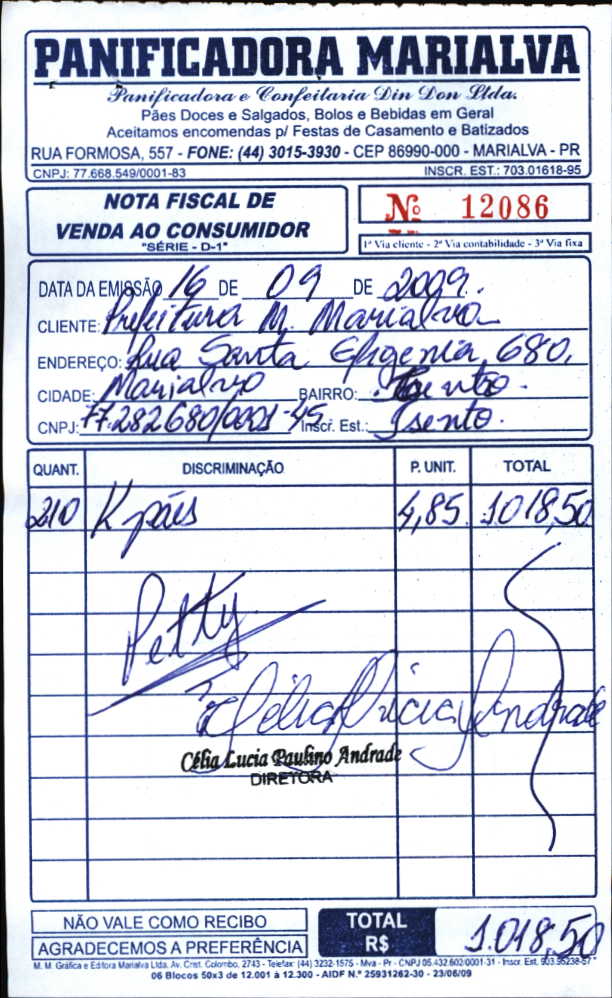 PANIFICADORA MARIALVA
Panificadora e Confeitaria Din Don Ltda.
Pães Doces e Salgados, Bolos e Bebidas em Geral
Aceitamos encomendas p/ Festas de Casamento e Batizados
RUA FORMOSA, 557 - FONE: (44) 3015-3930 - CEP 86990-000 - MARIALVA - PR
CNPJ: 77.668.549/0001-83 INSCR. EST.: 703.01618-95
NOTA FISCAL DE
VENDA AO CONSUMIDOR
"SÉRIE - D-1"
Nº 12086
1ª Via cliente - 2ª Via contabilidade - 3ª Via fixa
DATA DA EMISSÃO 16 DE 09 DE 2009.
CLIENTE: Prefeitura M. Marialva
ENDEREÇO: Rua Santa Efigenia, 680,
CIDADE: Marialva BAIRRO: Centro.
CNPJ: 77.282680/0001-45 Inscr. Est.: Isento.
QUANT. DISCRIMINAÇÃO P. UNIT. TOTAL
210 K pães 4,85 1.018,50
Petty
Célia Lúcia Andrade
Célia Lucia Paulino Andrade
DIRETORA
NÃO VALE COMO RECIBO
AGRADECEMOS A PREFERÊNCIA
TOTAL
R$ 1.018,50
M. M. Gráfica e Editora Marialva Ltda. Av. Crist. Colombo, 2743 - Telefax: (44) 3232-1575 - Mva - Pr - CNPJ 05.432.602/0001-31 - Inscr. Est. 903.95238-57
06 Blocos 50x3 de 12.001 à 12.300 - AIDF N.º 25931262-30 - 23/06/09